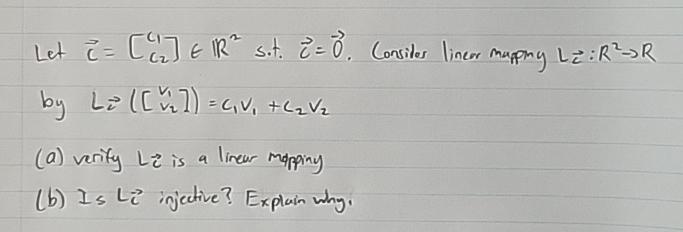 Let c⃗ = [c1 c2] ∈ ℝ² s.t. c⃗ = 0⃗. Consider linear mapping Lc⃗ : R² → R
by Lc⃗ ([v1 v2]) = c1v1 + c2v2
(a) verify Lc⃗ is a linear mapping
(b) Is Lc⃗ injective? Explain why.